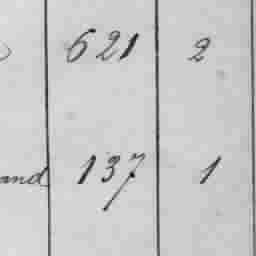 621 2
and 137 1